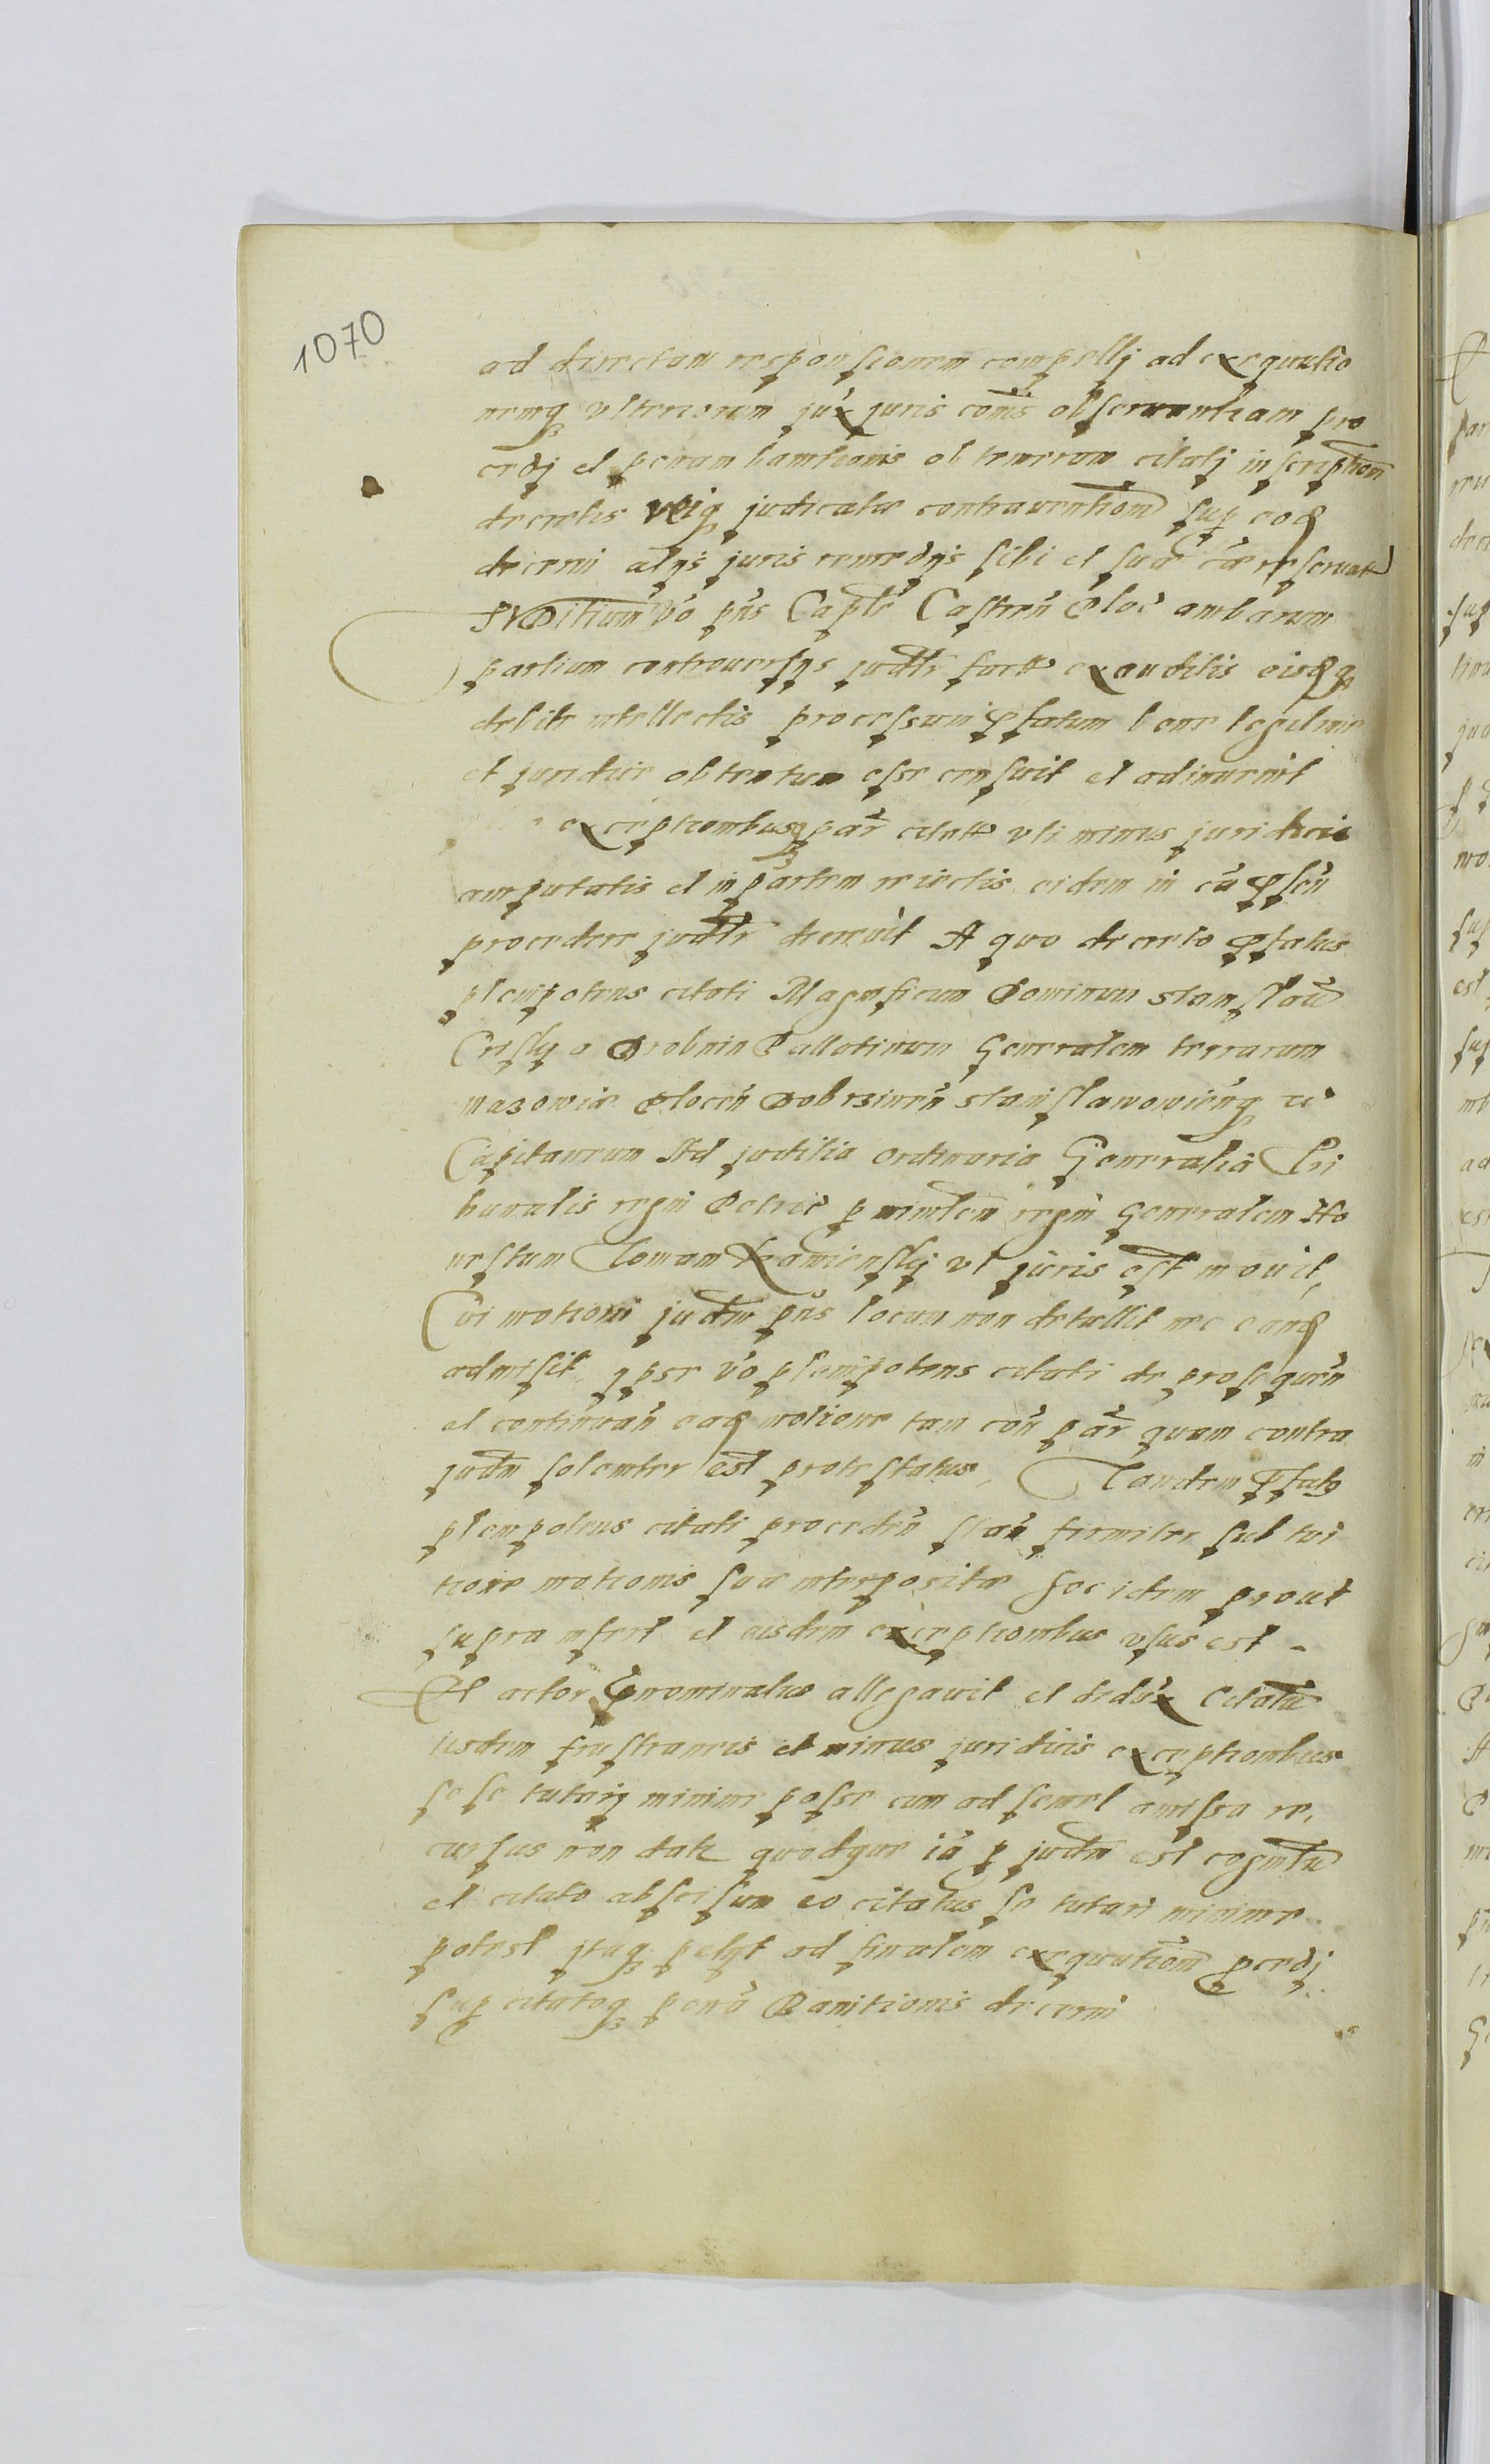 1070
ad directam responsionem compellj ad exequutio
nemq ulteriorem jux juris cois observantiam pro
cedj et penam bannitionis ob temeram citatj inscriptioni
decretis reiq judicatæ contraventionē sup eoq
decerni alijs juris remedijs sibi et suæ cæ reservatis
IVDitium vo pns Captle Castren Ploc ambarum
partium controversijs judtr fact exauditis eisqq
debite intellectis processum pfatum bene legitime
et juridice obtentum esse censuit et adinvenit
exceptionibusq par citatt uti minus juridicis
amputatis et in partem reiectis eidem in cā psen
procedere judtr decrevit A quo decreto pfatus
plenipotens citati Magnificum Dominum Stanislaū
Crisky a Drobnin Pallatinum Generalem terrarum
mazowiæ Plocen Dobrzinen Stanislawowienq etc
Capitaneum Ad juditia ordinaria Generalia Tri
bunalis regni Petric p ministem regni Generalem Ho
nestum Tomam Kamiensky ut juris est movit,
Cui motioni judm pns locum non detullit nec eanq
admisit, Ipse vo plenipotens citati de prosequen
et continuan eaq motione tam con par quam contra
judm solemter est protestatus, Tandem pfatus
plenipotens citati proceden stan firmiter sub tui
tione motionis suæ interpositæ hoc idem prout
supra infert et eisdem exceptionibus usus est -
Et actor prænominatus allegavit et dedux Citatū
iisdem frustraneis et minus juridicis exceptionibus
sese tutarj minime posse cum ad semel amissa re,
cursus non datr quodque iā p judm est cognitū
et citato abscissum eo citatus se tutari minime
potest Itaq petijt ad finalem exequutionē procedj
sup citatoq penā Banitionis decerni